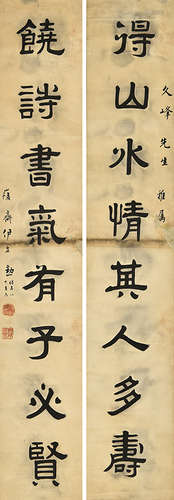 得山水情其人多壽
久峰先生雅屬
饒詩書氣有子必賢
伊立勳